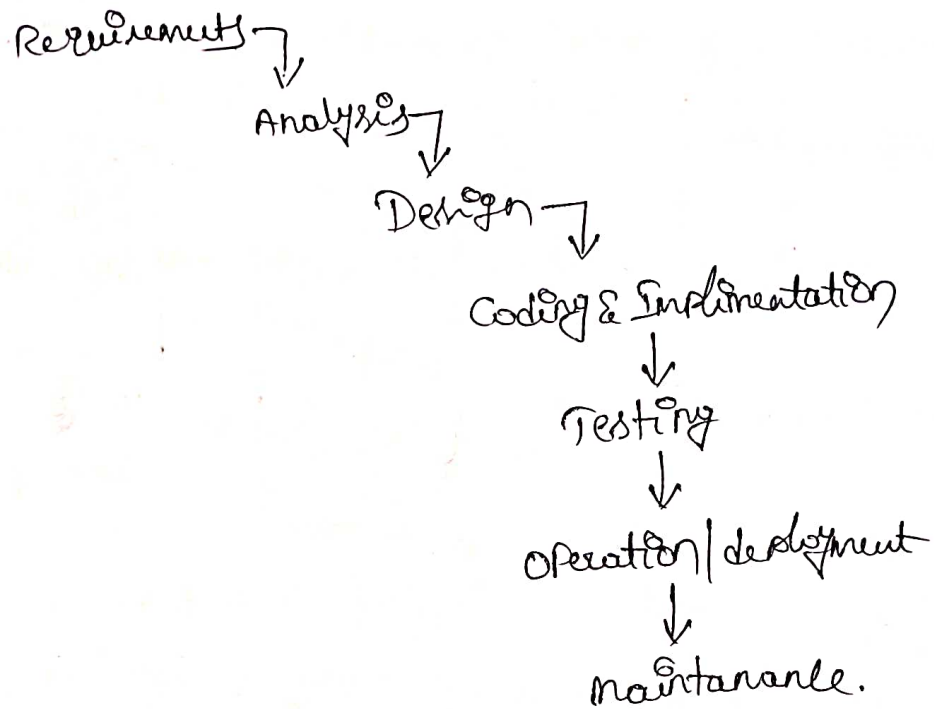 Requirements
Analysis
Design
Coding & Implimentation
Testing
Operation/deployment
Maintanance.